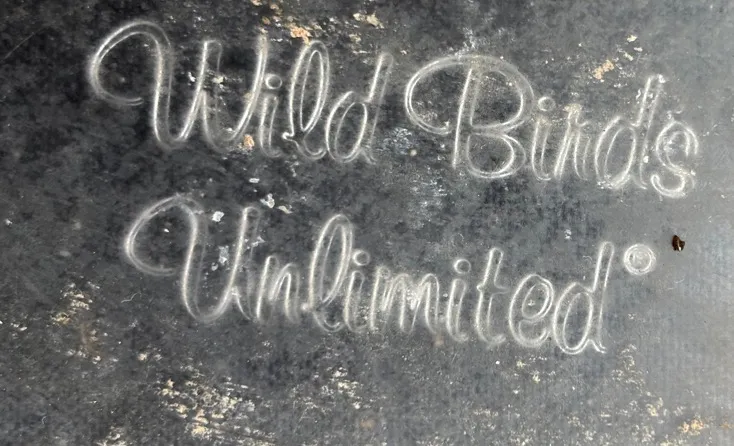 Wild Birds
Unlimited®